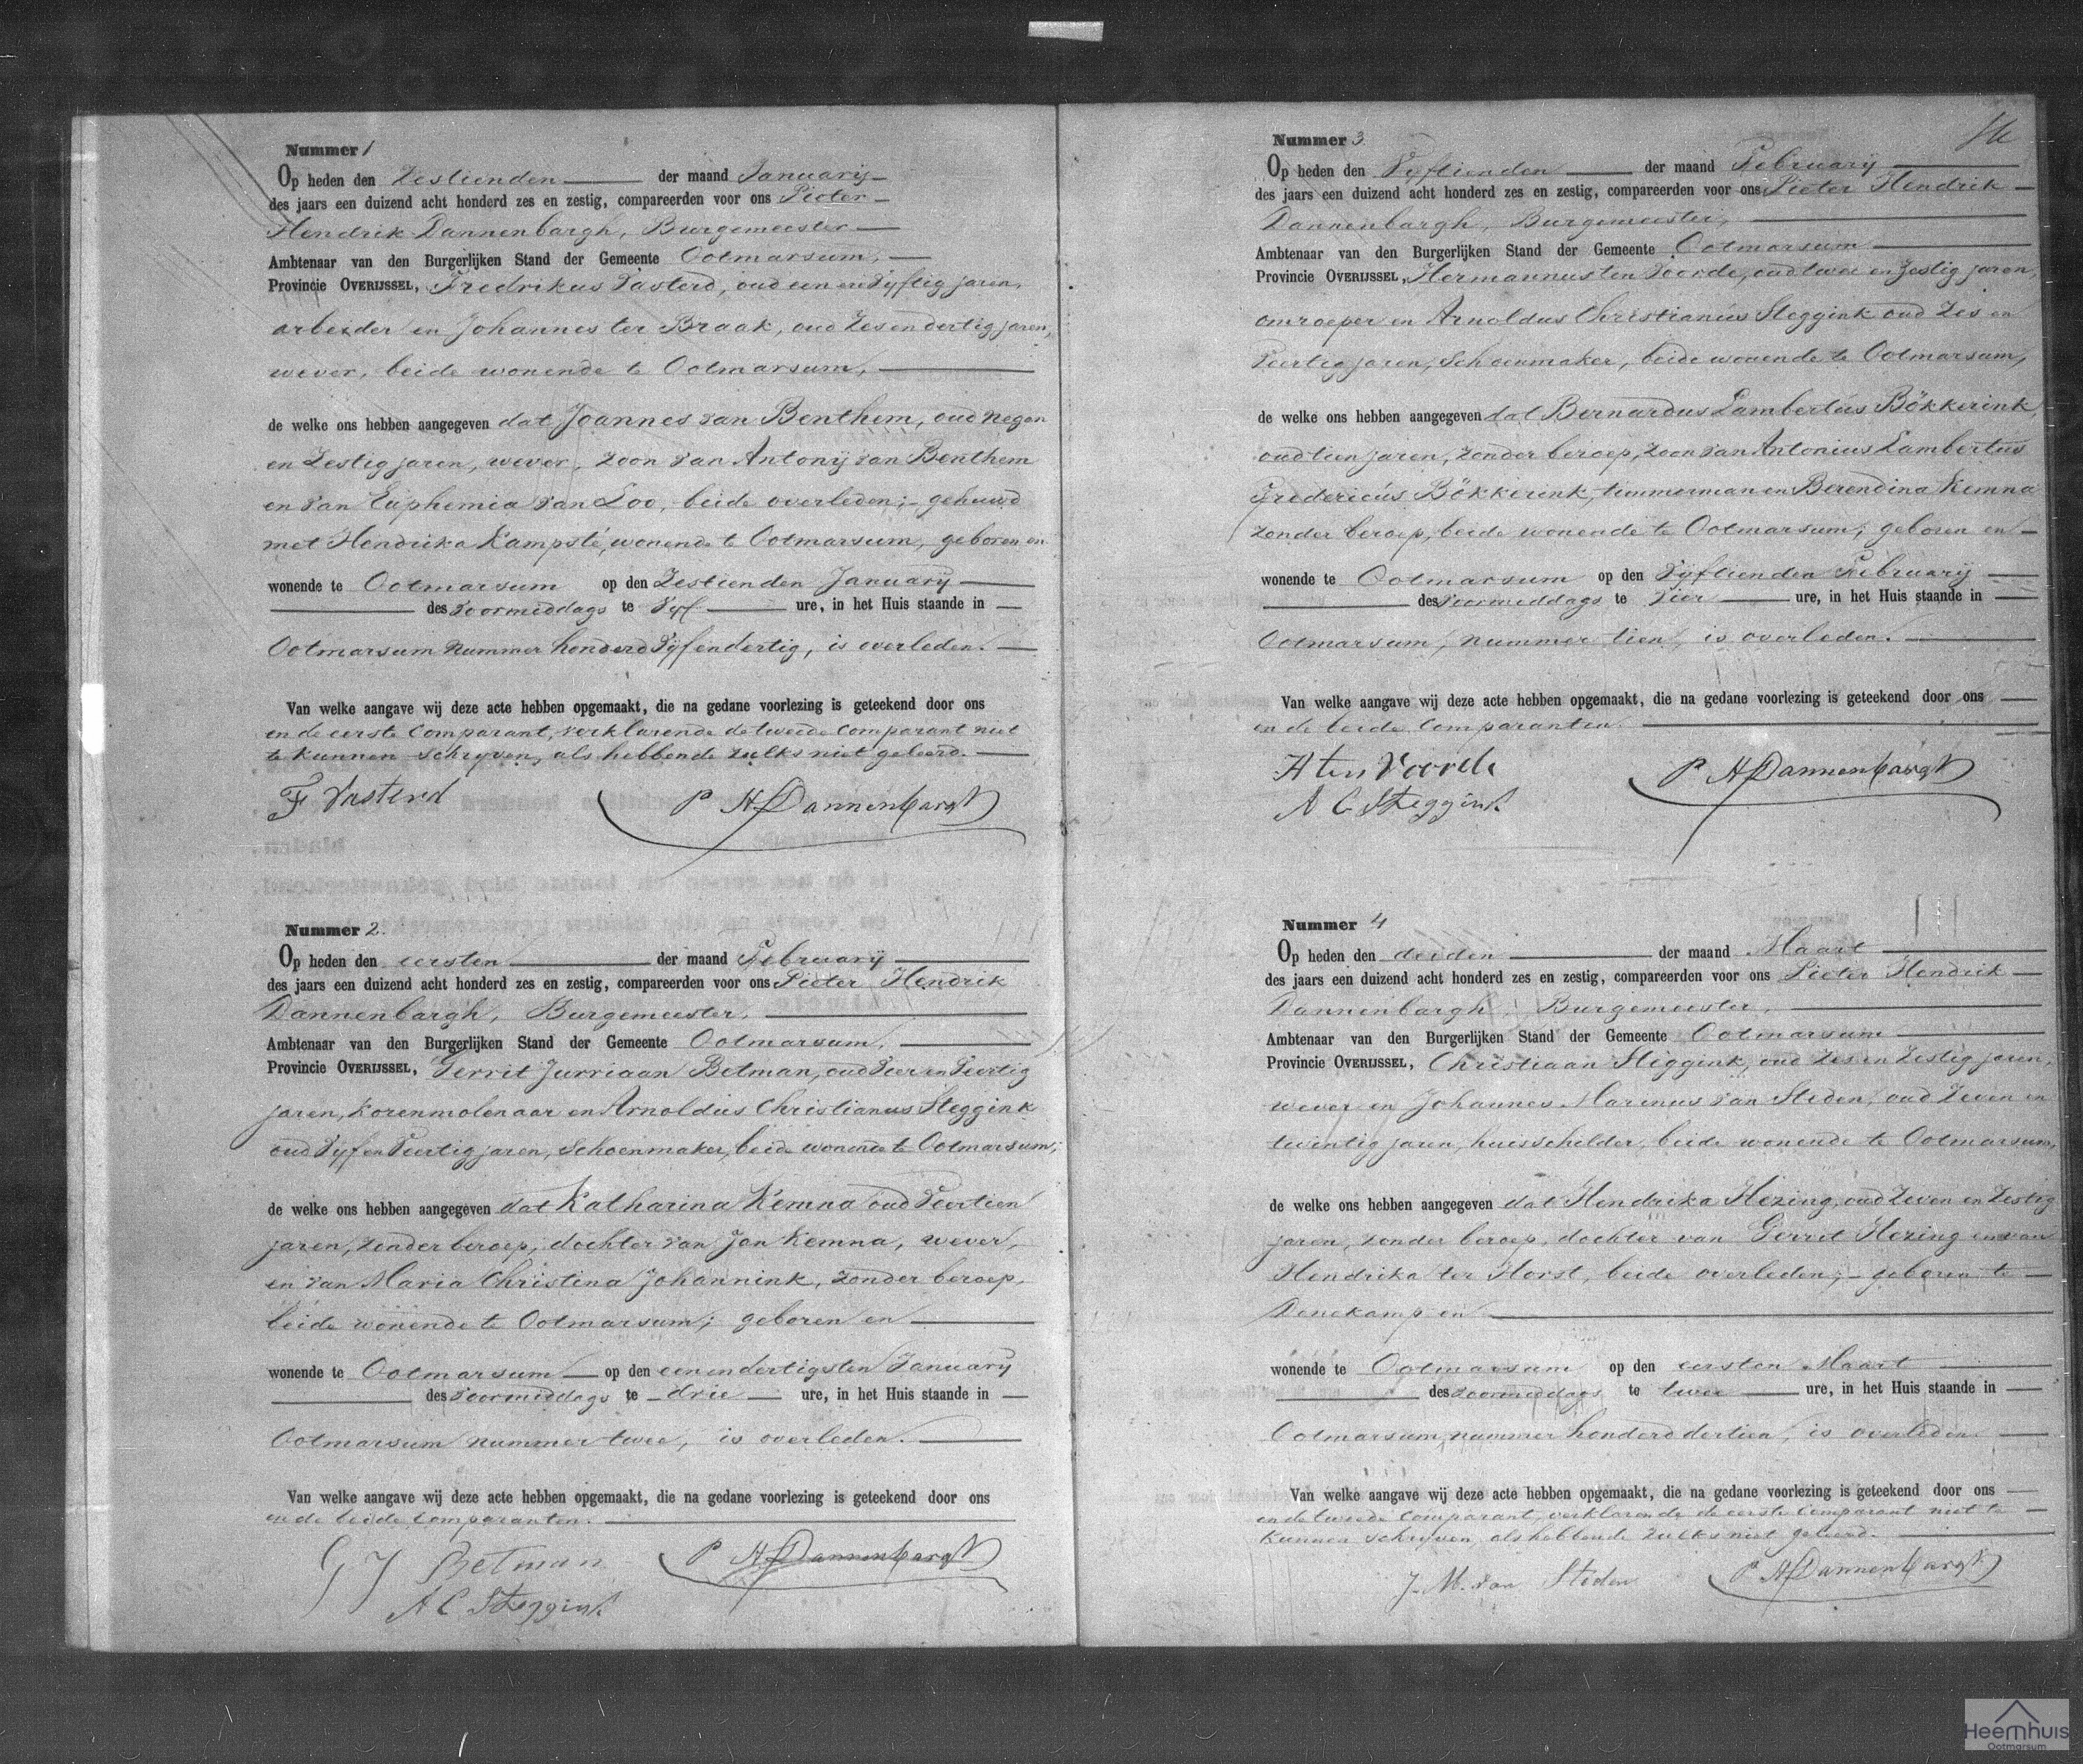 Nummer 1
Op heden den Zestienden der maand Januarij
des jaars een duizend acht honderd zes en zestig, compareerden voor ons Pieter
Hendrik Dannenbargh, Burgemeester
Ambtenaar van den Burgerlijken Stand der Gemeente Ootmarsum,
Provincie OVERIJSSEL, Fredrikus Vasterd, oud een en Vyftig jaren,
arbeider en Johannes ter Braak, oud Zes en dertig jaren,
wever, beide wonende te Ootmarsum,
de welke ons hebben aangegeven dat Joannes van Benthem, oud negen
en Zestig jaren, wever, zoon van Antonij van Benthem
en van Euphemia van Loo, beide overleden; gehuwd
met Hendrika Kampsté, wonende te Ootmarsum, geboren en
wonende te Ootmarsum op den Zestienden January
des voormiddags te Vyf ure, in het Huis staande in
Ootmarsum Nummer honderd Vyfendertig, is overleden.
Van welke aangave wij deze acte hebben opgemaakt, die na gedane voorlezing is geteekend door ons
en de eerste Comparant, verklarende de tweede Comparant niet
te kunnen schryven, als hebbende zulks niet geleerd.
F Vasterd P H Dannenbargh
Nummer 2.
Op heden den eersten der maand Februarij
des jaars een duizend acht honderd zes en zestig, compareerden voor ons Pieter Hendrik
Dannenbargh, Burgemeester,
Ambtenaar van den Burgerlijken Stand der Gemeente Ootmarsum,
Provincie OVERIJSSEL, Gerrit Jurriaan Betman, oud Vier en Veertig
jaren, Korenmolenaar en Arnoldus Christianus Steggink
oud Vyf en Veertig jaren, Schoenmaker, beide wonende te Ootmarsum;
de welke ons hebben aangegeven dat Katharina Kemna oud Veertien
jaren, zonder beroep, dochter van Jan Kemna, wever,
en van Maria Christina Johannink, zonder beroep,
beide wonende te Ootmarsum; geboren en
wonende te Ootmarsum op den een en dertigsten January
des voormiddags te drie ure, in het Huis staande in
Ootmarsum nummer twee, is overleden.
Van welke aangave wij deze acte hebben opgemaakt, die na gedane voorlezing is geteekend door ons
en de beide Comparanten.
G J Betman P H Dannenbargh
A C Steggink
Nummer 3
Op heden den Vyftienden der maand Februarij
des jaars een duizend acht honderd zes en zestig, compareerden voor ons Pieter Hendrik
Dannenbargh, Burgemeester,
Ambtenaar van den Burgerlijken Stand der Gemeente Ootmarsum
Provincie OVERIJSSEL, Hermannus ten Voorde, oud twee en Zestig jaren,
omroeper en Arnoldus Christianus Steggink oud Zes en
Veertig jaren, Schoenmaker, beide wonende te Ootmarsum,
de welke ons hebben aangegeven dat Bernardus Lambertus Bökkerink,
oud tien jaren, zonder beroep, zoon van Antonius Lambertus
Fredericus Bökkerink, timmerman en Berendina Kemna
zonder beroep, beide wonende te Ootmarsum; geboren en
wonende te Ootmarsum op den Vyftienden Februarij
des voormiddags te Vier ure, in het Huis staande in
Ootmarsum, nummer tien, is overleden.
Van welke aangave wij deze acte hebben opgemaakt, die na gedane voorlezing is geteekend door ons
en de beide Comparanten.
H ten Voorde P H Dannenbargh
A C Steggink
Nummer 4
Op heden den derden der maand Maart
des jaars een duizend acht honderd zes en zestig, compareerden voor ons Pieter Hendrik
Dannenbargh, Burgemeester,
Ambtenaar van den Burgerlijken Stand der Gemeente Ootmarsum
Provincie OVERIJSSEL, Christiaan Steggink, oud Zes en Zestig jaren,
wever en Johannes Marinus van Steden, oud Zeven en
twintig jaren, huisschilder, beide wonende te Ootmarsum,
de welke ons hebben aangegeven dat Hendrika Hezing, oud Zeven en Zestig
jaren, zonder beroep, dochter van Gerrit Hezing en van
Hendrika ter Horst, beide overleden; geboren te
Denekamp en
wonende te Ootmarsum op den eersten Maart
des voormiddags te twee ure, in het Huis staande in
Ootmarsum, nummer honderd dertien, is overleden.
Van welke aangave wij deze acte hebben opgemaakt, die na gedane voorlezing is geteekend door ons
en de tweede Comparant, verklarende de eerste Comparant niet te
kunnen schryven, als hebbende zulks niet geleerd.
J. M. van Steden P H Dannenbargh
Heemhuis
Ootmarsum